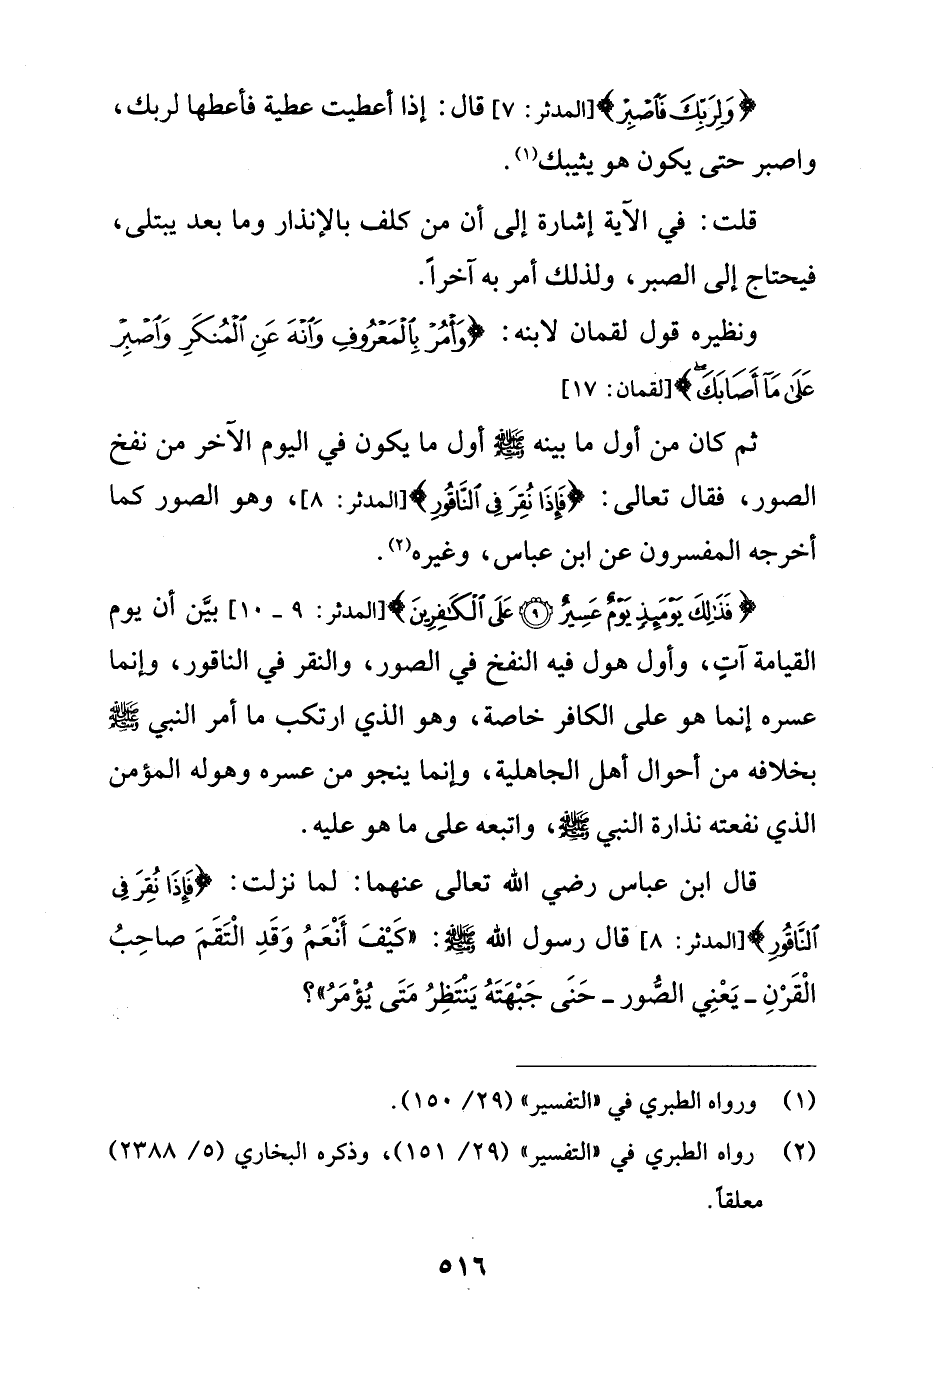 ﴿وَلِرَبِّكَ فَٱصْبِرْ﴾[المدثر: ٧] قال: إذا أعطيت عطية فأعطها لربك،
واصبر حتى يكون هو يثيبك(١).
قلت: في الآية إشارة إلى أن من كلف بالإنذار وما بعد يبتلى،
فيحتاج إلى الصبر، ولذلك أمر به آخراً.
ونظيره قول لقمان لابنه: ﴿وَأْمُرْ بِٱلْمَعْرُوفِ وَٱنْهَ عَنِ ٱلْمُنكَرِ وَٱصْبِرْ
عَلَىٰ مَآ أَصَابَكَۖ﴾[لقمان: ١٧]
ثم كان من أول ما بينه ﷺ أول ما يكون في اليوم الآخر من نفخ
الصور، فقال تعالى: ﴿فَإِذَا نُقِرَ فِى ٱلنَّاقُورِ﴾[المدثر: ٨]، وهو الصور كما
أخرجه المفسرون عن ابن عباس، وغيره(٢).
﴿فَذَٰلِكَ يَوْمَئِذٍ يَوْمٌ عَسِيرٌ ٩ عَلَى ٱلْكَٰفِرِينَ﴾[المدثر: ٩ - ١٠] بيَّن أن يوم
القيامة آتٍ، وأول هول فيه النفخ في الصور، والنقر في الناقور، وإنما
عسره إنما هو على الكافر خاصة، وهو الذي ارتكب ما أمر النبي ﷺ
بخلافه من أحوال أهل الجاهلية، وإنما ينجو من عسره وهوله المؤمن
الذي نفعته نذارة النبي ﷺ، واتبعه على ما هو عليه.
قال ابن عباس رضي الله تعالى عنهما: لما نزلت: ﴿فَإِذَا نُقِرَ فِى
ٱلنَّاقُورِ﴾[المدثر: ٨] قال رسول الله ﷺ: «كَيْفَ أَنْعَمُ وَقَدِ الْتَقَمَ صاحِبُ
القَرْنِ - يَعْنِي الصُّور - حَنَى جَبْهَتَهُ يَنْتَظِرُ مَتَى يُؤْمَرُ»؟
(١) ورواه الطبري في «التفسير» (٢٩/ ١٥٠).
(٢) رواه الطبري في «التفسير» (٢٩/ ١٥١)، وذكره البخاري (٥/ ٢٣٨٨)
معلقاً.
٥١٦